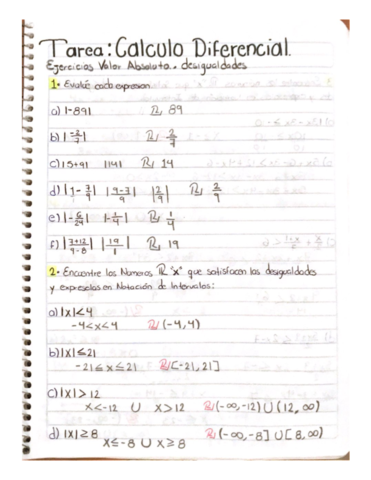 Tarea: Calculo Diferencial.
Ejercicios Valor Absoluto. desigualdades
1- Evalué cada expresion
a) |-89| R/ 89
b) |-2/7| R/ 2/7
c) |5+9| |14| R/ 14
d) |1-7/9| |9-7/9| |2/9| R/ 2/9
e) |-6/24| |-1/4| R/ 1/4
f) |7+12/9-8| |19/1| R/ 19
2- Encuentre los Numeros R "x" que satisfacen las desigualdades
y expreselas en Notación de Intervalos:
a) |x|<4
-4<x<4 R/ (-4,4)
b) |x|≤21
-21≤x≤21 R/ [-21,21]
c) |x|>12
x<-12 U x>12 R/ (-∞,-12) U (12,∞)
d) |x|≥8
x≤-8 U x≥8 R/ (-∞,-8] U [8,∞)